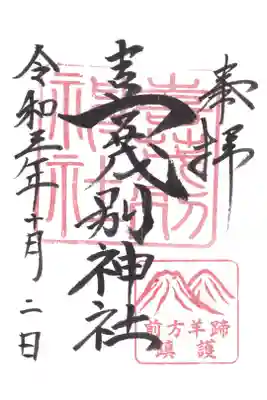 奉拝
喜茂別神社
令和三年十月二日
喜茂別
神社
前方羊蹄
鎮護